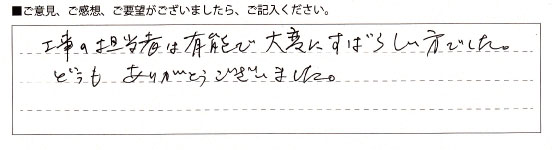 ■ご意見、ご感想、ご要望がございましたら、ご記入ください。
工事の担当者は有能で大変にすばらしい方でした。
どうもありがとうございました。